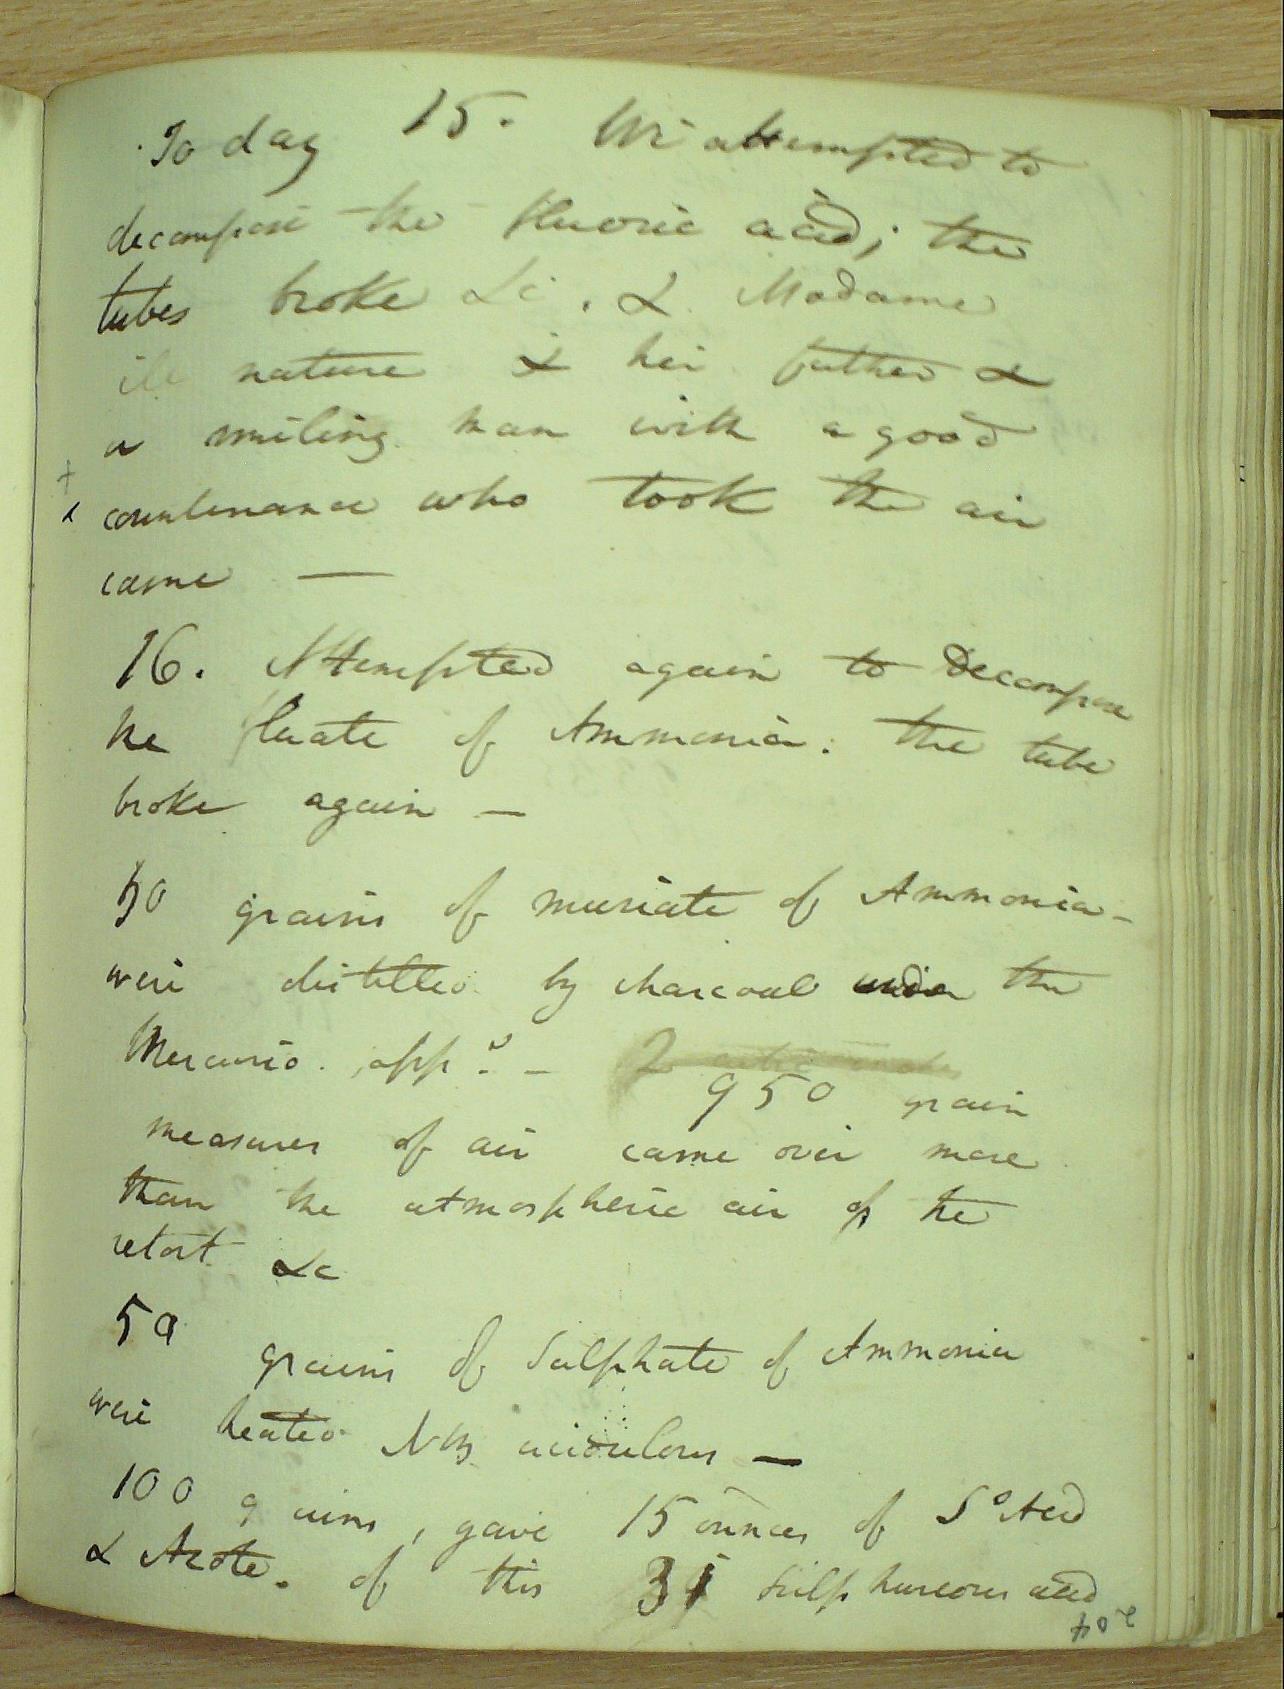 To day 15. We attempted to
decompose the fluoric acid; the
tubes broke &c. & Madame
ill nature & her father &
a smiling man with a good
& countenance who took the air
came —
16. Attempted again to Decompose
the fluate of Ammonia. The tube
broke again —
50 grains of muriate of Ammonia -
were distilled by charcoal under the
Mercurio. app.s - 2 cubic inches
950 grain
measures of air came over more
than the atmospheric air of the
retort &c
50
grains of Sulphate of Ammonia
were heated acidulous —
100 grains, gave 15 ounces of So Acid
& Azote. of this 31 Sulphureous acid